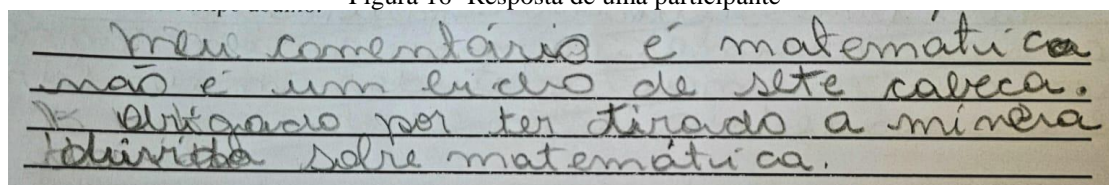 Figura 16- Resposta de uma participante
meu comentário é matemática
não é um bicho de sete cabeca.
obrigado por ter tirado a minha
duvida sobre matemática.